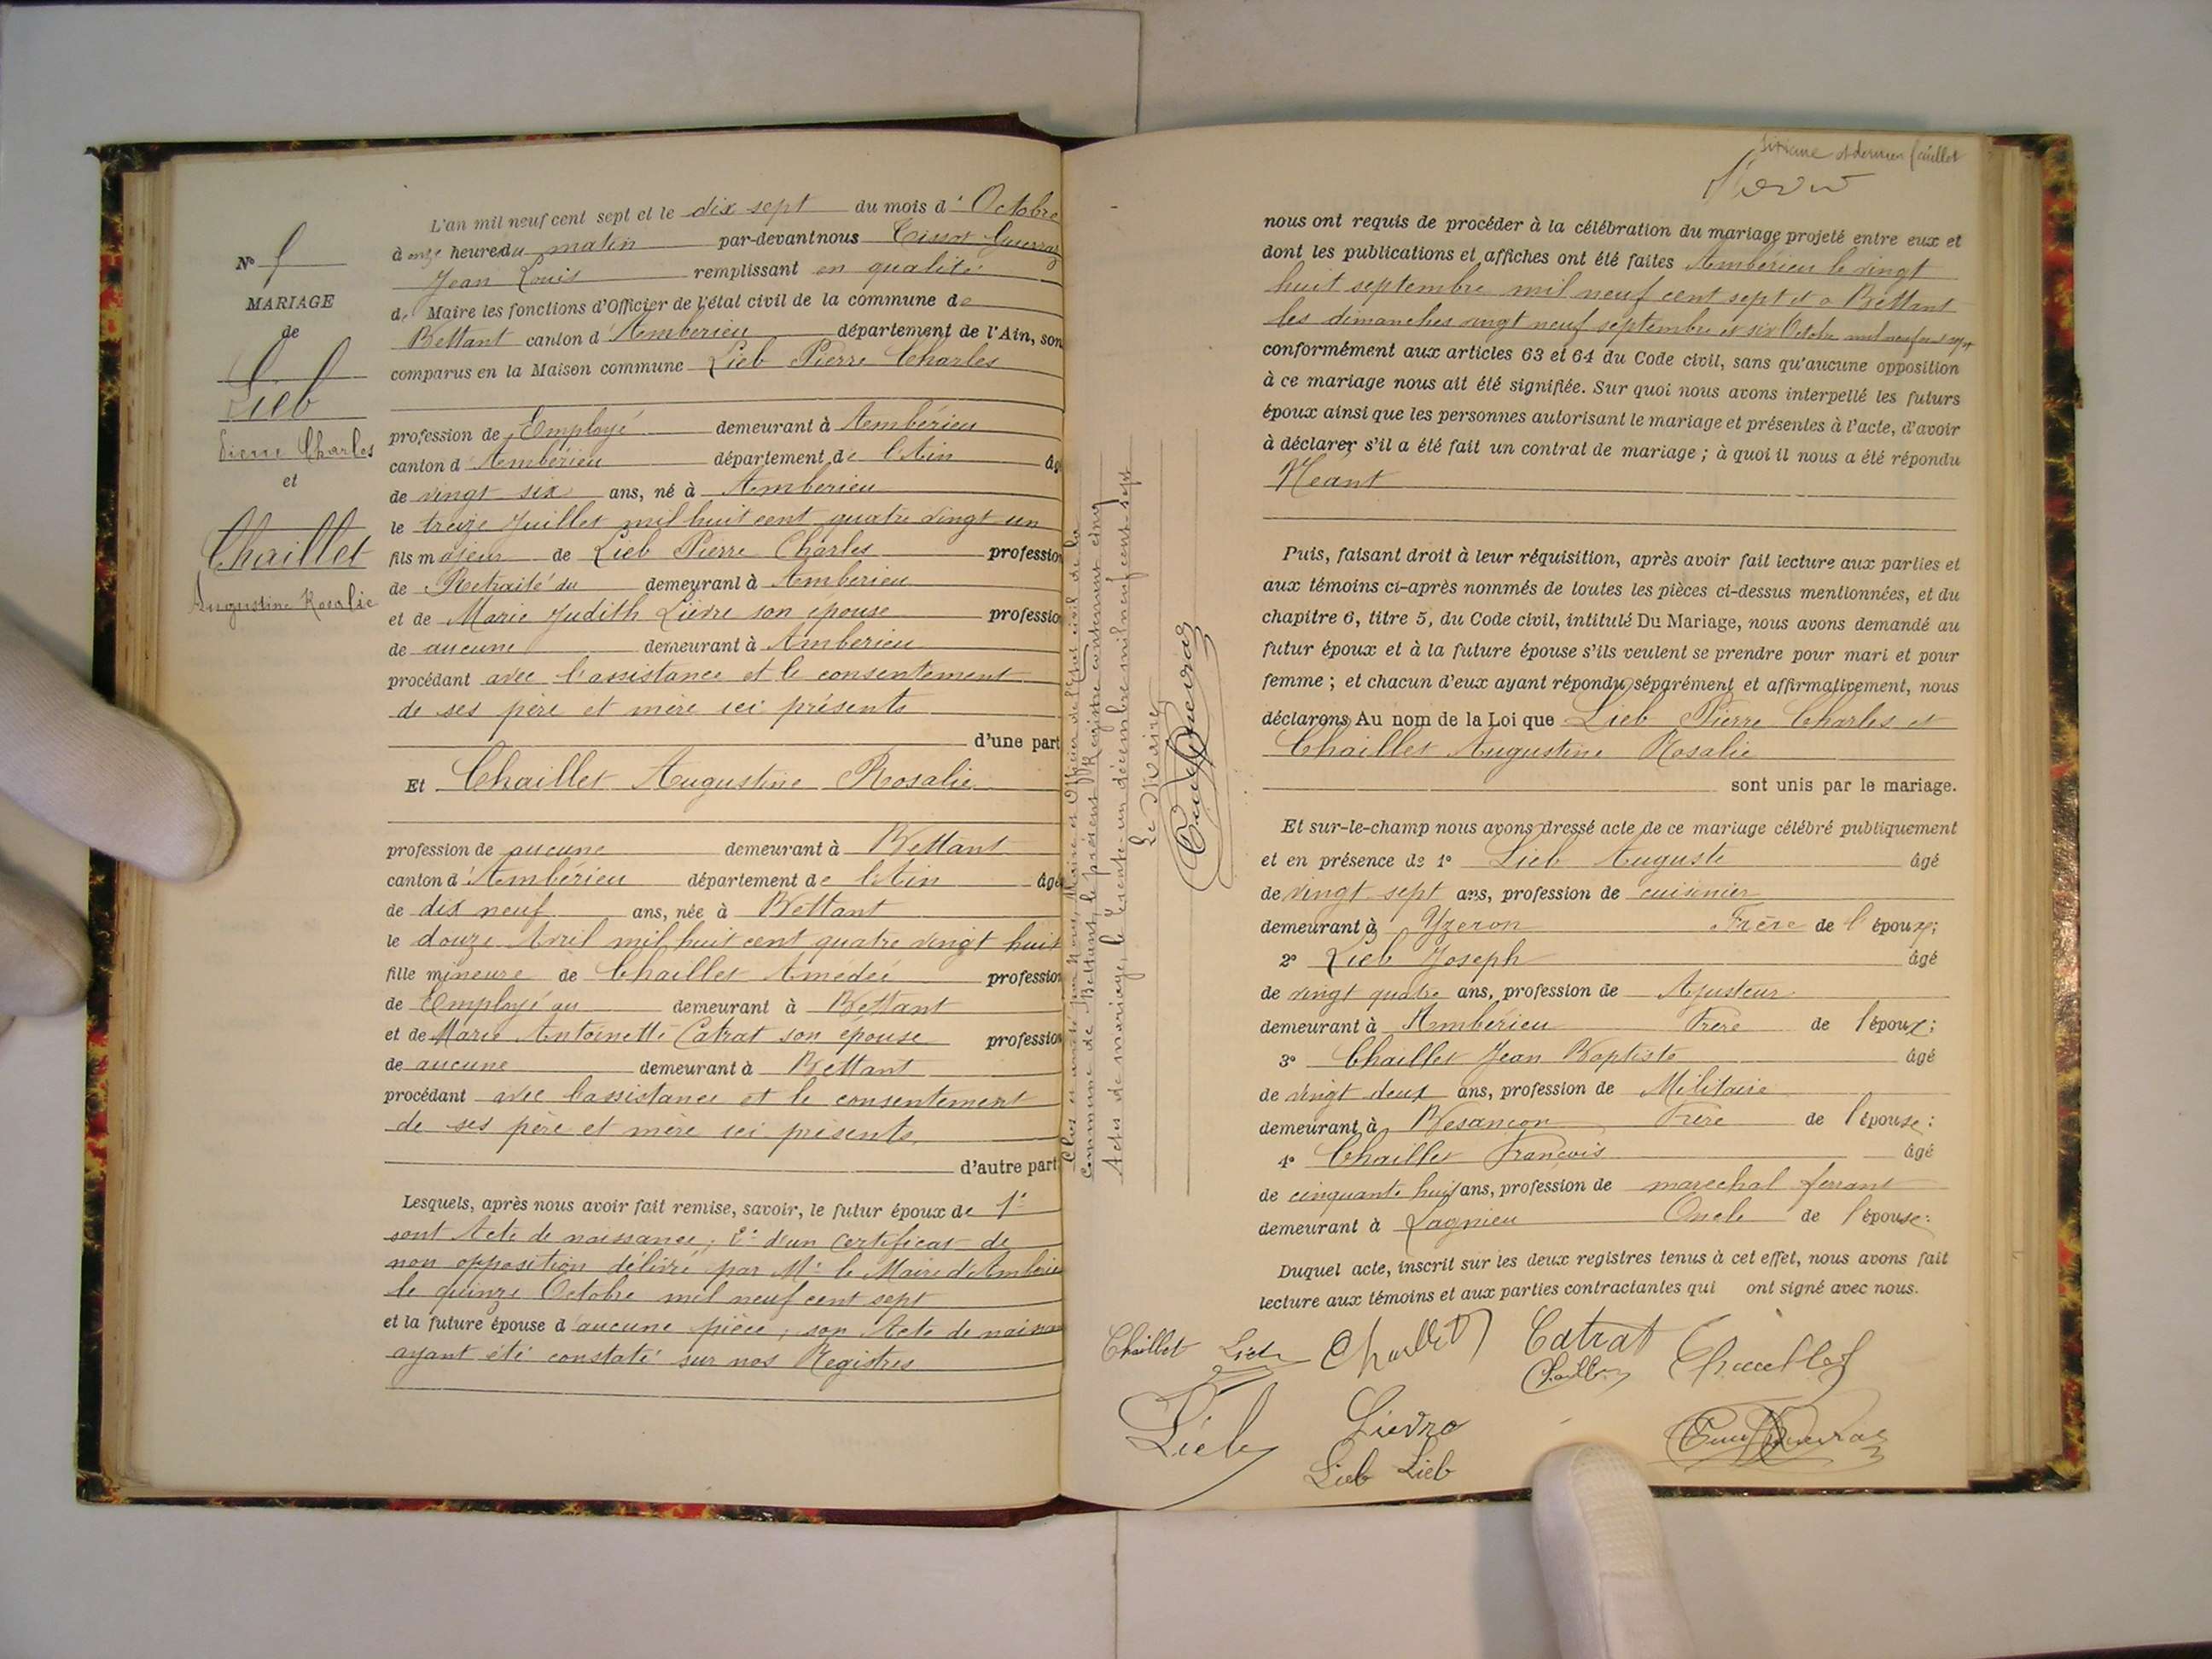 L'an mil neuf cent sept et le dix sept du mois d' Octobre
à onze heures du matin par-devant nous
Jean Louis remplissant en qualité
de Maire les fonctions d'Officier de l'état civil de la commune de
Bettant canton d' Ambérieu département de l'Ain, son
comparus en la Maison commune Lieb Pierre Charles
profession de Employé demeurant à Ambérieu
canton d' Ambérieu département de l'Ain âg
de vingt six ans, né à Ambérieu
le treize Juillet mil huit cent quatre vingt un
fils majeur de Lieb Pierre Charles profession
de Retraité du demeurant à Ambérieu
et de Marie Judith Lièvre son épouse profession
de aucune demeurant à Ambérieu
procédant avec l'assistance et le consentement
de ses père et mère ici présents
d'une part
Et Chaillet Augustine Rosalie
profession de aucune demeurant à Bettant
canton d' Ambérieu département de l'Ain âgé
de dix neuf ans, née à Bettant
le douze Avril mil huit cent quatre vingt huit
fille mineure de Chaillet Amédée profession
de Employé au demeurant à Bettant
et de Marie Antoinette Catrat son épouse profession
de aucune demeurant à Bettant
procédant avec l'assistance et le consentement
de ses père et mère ici présents
d'autre part
Lesquels, après nous avoir fait remise, savoir, le futur époux de 1°
sont Acte de naissance; 2° d'un certificat de
non opposition délivré par Mr le Maire d'Ambérieu
le quinze Octobre mil neuf cent sept
et la future épouse d'aucune pièce; son Acte de naissance
ayant été constaté sur nos Registres
N°
MARIAGE
de
Lieb
Pierre Charles
et
Chaillet
Augustine Rosalie
Clos et arrêté par Nous, Maire et Officier de l'Etat civil de la
commune de Bettant, le présent Registre contenant cinq
Actes de mariage, le trente-un décembre mil neuf cent sept
Le Maire
dernier feuillet
nous ont requis de procéder à la célébration du mariage projeté entre eux et
dont les publications et affiches ont été faites Ambérieu le vingt
huit septembre mil neuf cent sept et a Bettant
les dimanches vingt neuf septembre et six Octobre mil neuf cent sept
conformément aux articles 63 et 64 du Code civil, sans qu'aucune opposition
à ce mariage nous ait été signifiée. Sur quoi nous avons interpellé les futurs
époux ainsi que les personnes autorisant le mariage et présentes à l'acte, d'avoir
à déclarer s'il a été fait un contrat de mariage ; à quoi il nous a été répondu
Néant
Puis, faisant droit à leur réquisition, après avoir fait lecture aux parties et
aux témoins ci-après nommés de toutes les pièces ci-dessus mentionnées, et du
chapitre 6, titre 5, du Code civil, intitulé Du Mariage, nous avons demandé au
futur époux et à la future épouse s'ils veulent se prendre pour mari et pour
femme ; et chacun d'eux ayant répondu séparément et affirmativement, nous
déclarons Au nom de la Loi que Lieb Pierre Charles et
Chaillet Augustine Rosalie
sont unis par le mariage.
Et sur-le-champ nous avons dressé acte de ce mariage célébré publiquement
et en présence de 1° Lieb Auguste âgé
de vingt sept ans, profession de cuisinier
demeurant à Yzeron Frère de l'époux;
2° Lieb Joseph âgé
de vingt quatre ans, profession de Ajusteur
demeurant à Ambérieu Frère de l'époux;
3° Chaillet Jean Baptiste âgé
de vingt deux ans, profession de Militaire
demeurant à Besançon Frère de l'épouse:
4° Chaillet François âgé
de cinquante huit ans, profession de maréchal ferrant
demeurant à Lagnieu Oncle de l'épouse:
Duquel acte, inscrit sur les deux registres tenus à cet effet, nous avons fait
lecture aux témoins et aux parties contractantes qui ont signé avec nous.
Chaillet Lieb Chaillet Catrat Chaillet
Chaillet
Lieb Lièvre
Lieb Lieb